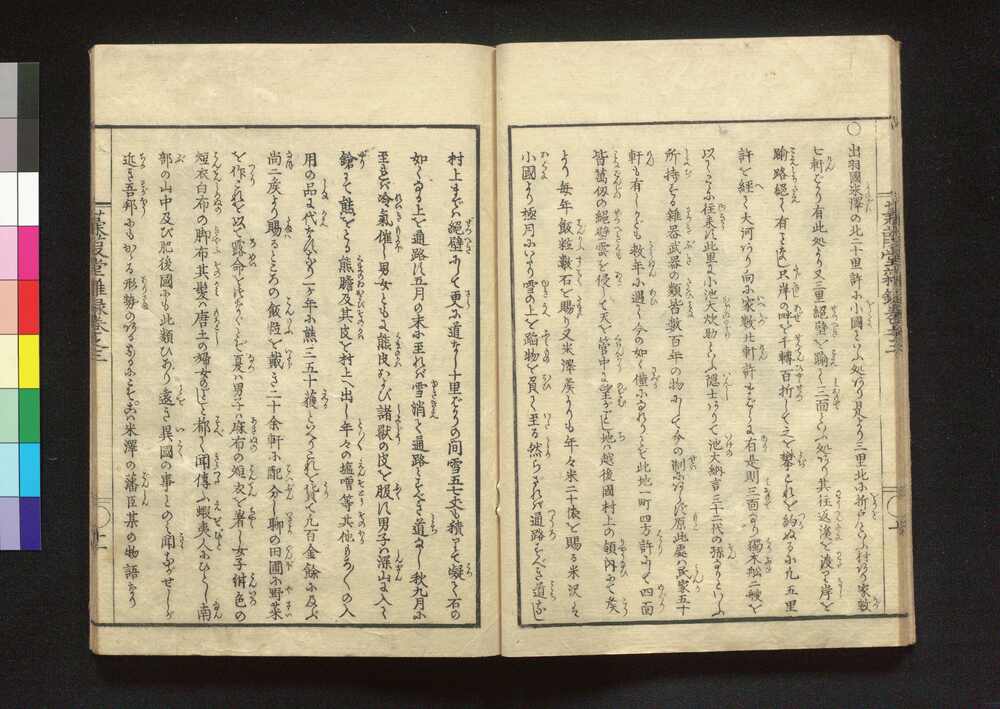 ○出羽國米澤の北二十里許に小國といふ処あり是より三里北に折戸といふ村あり家数
七軒ばかり有此処より又三里絶壁を踰て三面といふ処あり其往返溪を渡り岸を
踰路絶て有ことなし只岸の岨を千轉百折してこを攀これを約ぬるに凡五里
許を経て大河あり向に家数廿軒許まばらに有是則三面なり獨木舩二艘を
以てこゝに往来す此里に小池大炊助といふ隠士ありて池大納言三十二代の孫なりといふ
所持する雑器武器の類皆数百年の物にして今の制にあらず原此処は民家五十
軒も有しかども数年に過て今の如く僅になれりとぞ此地一町四方許にして四面
皆萬仭の絶壁雲を侵して天を管中に望がごとし地は越後國村上の領内にて矦
より毎年飯粒数石を賜り又米澤矦よりも年々米二十俵を賜る米沢は
小國より極月にいたり雪の上を踏物を負て至る然らざれば通路すべき道なし
村上までは絶壁にして更に道なし十里ばかりの間雪五七丈も積りて凝て石の
如くなる上を通路す五月の末に至れば雪消て通路すべき道なし秋九月に
至れば冷氣催し男女ともに熊皮および諸獣の皮を服す男子は深山に入て
鎗にて熊をとる熊膽及其皮を村上へ出し年々の塩噌等其他もろ〱の入
用の品に代るなり一ケ年に熊三五十獲といへりこれを貨て凡百金餘に及ぶ
尚二矦より賜るところの飯粒を戴き二十余軒に配分し聊の田圃に野菜
を作これを以て露命をつなぐとぞ夏は男子は麻布の短衣を着し女子は紺色の
短衣白布の脚布其髪は唐土の婦女のごとし都て聞傳ふ蝦夷人にひとし南
部の山中及び肥後國にも此類ひあり遠き異國の事とのみ聞なせしが
近き吾邦にもかゝる形勢のあるなるにこそこは米澤の藩臣某の物語なり
蒹葭堂雑録巻之三
十
蒹葭堂雑録巻之三
十一